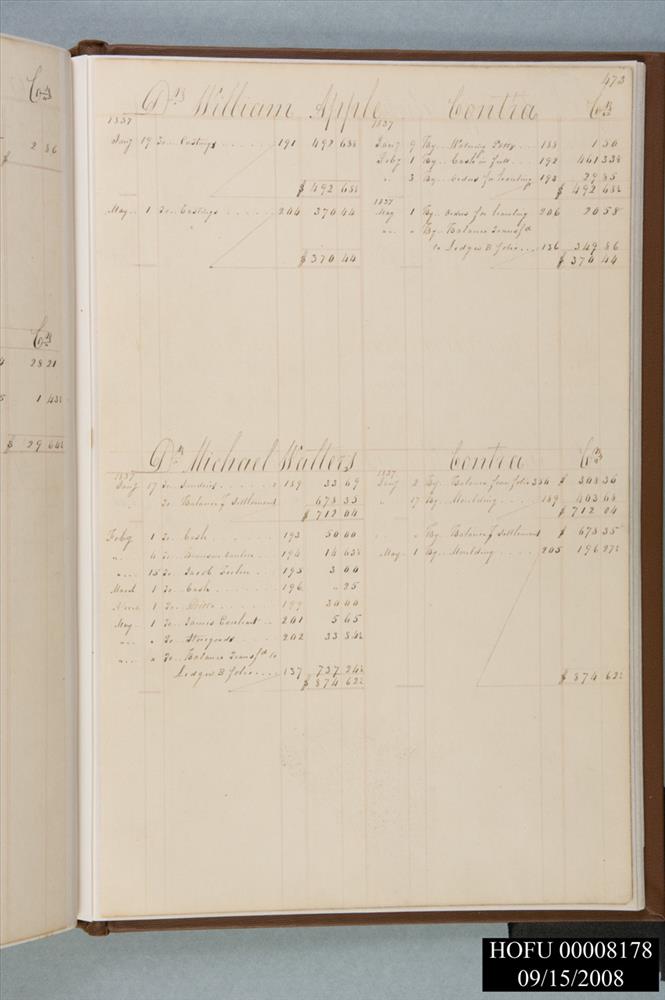 Cr
2 86
$
Cr
28 21
1 43½
$ 29 64½
473
Dr William Apple Contra Cr
1837 1837
Jany 19 To Castings 191 492 68½ Jany 9 By 188 1 50
Feby 1 By Cash in full 192 461 33½
" 3 By Orders for hauling 193 29 85
$ 492 68½ $ 492 68½
1837
May 1 To Castings 204 370 44 May 1 By Orders for hauling 206 20 58
" " By Balance Transfd
to Ledger B folio 136 349 86
$ 370 44 $ 370 44
Dr Michael Walters Contra Cr
1837 1837
Jany 17 To Sundries 189 33 69 Jany 2 By Balance from folio 334 $ 308 36
" To Balance f Settlement 678 35 " 17 By Moulding 189 403 68
$ 712 04 $ 712 04
Feby 1 To Cash 193 50 00 " By Balance f Settlement $ 678 35
" 4 To 194 14 63½ May 1 By Moulding 205 196 27½
" 15 To Jacob 195 3 00
March 1 To Cash 196 " 25
1 To Ditto 199 30 00
May 1 To James 201 5 65
" " To Storegoods 202 33 84½
" " To Balance Transfd to
Ledger B folio 137 737 24½
$ 874 62½ $ 874 62½
HOFU 00008178
09/15/2008